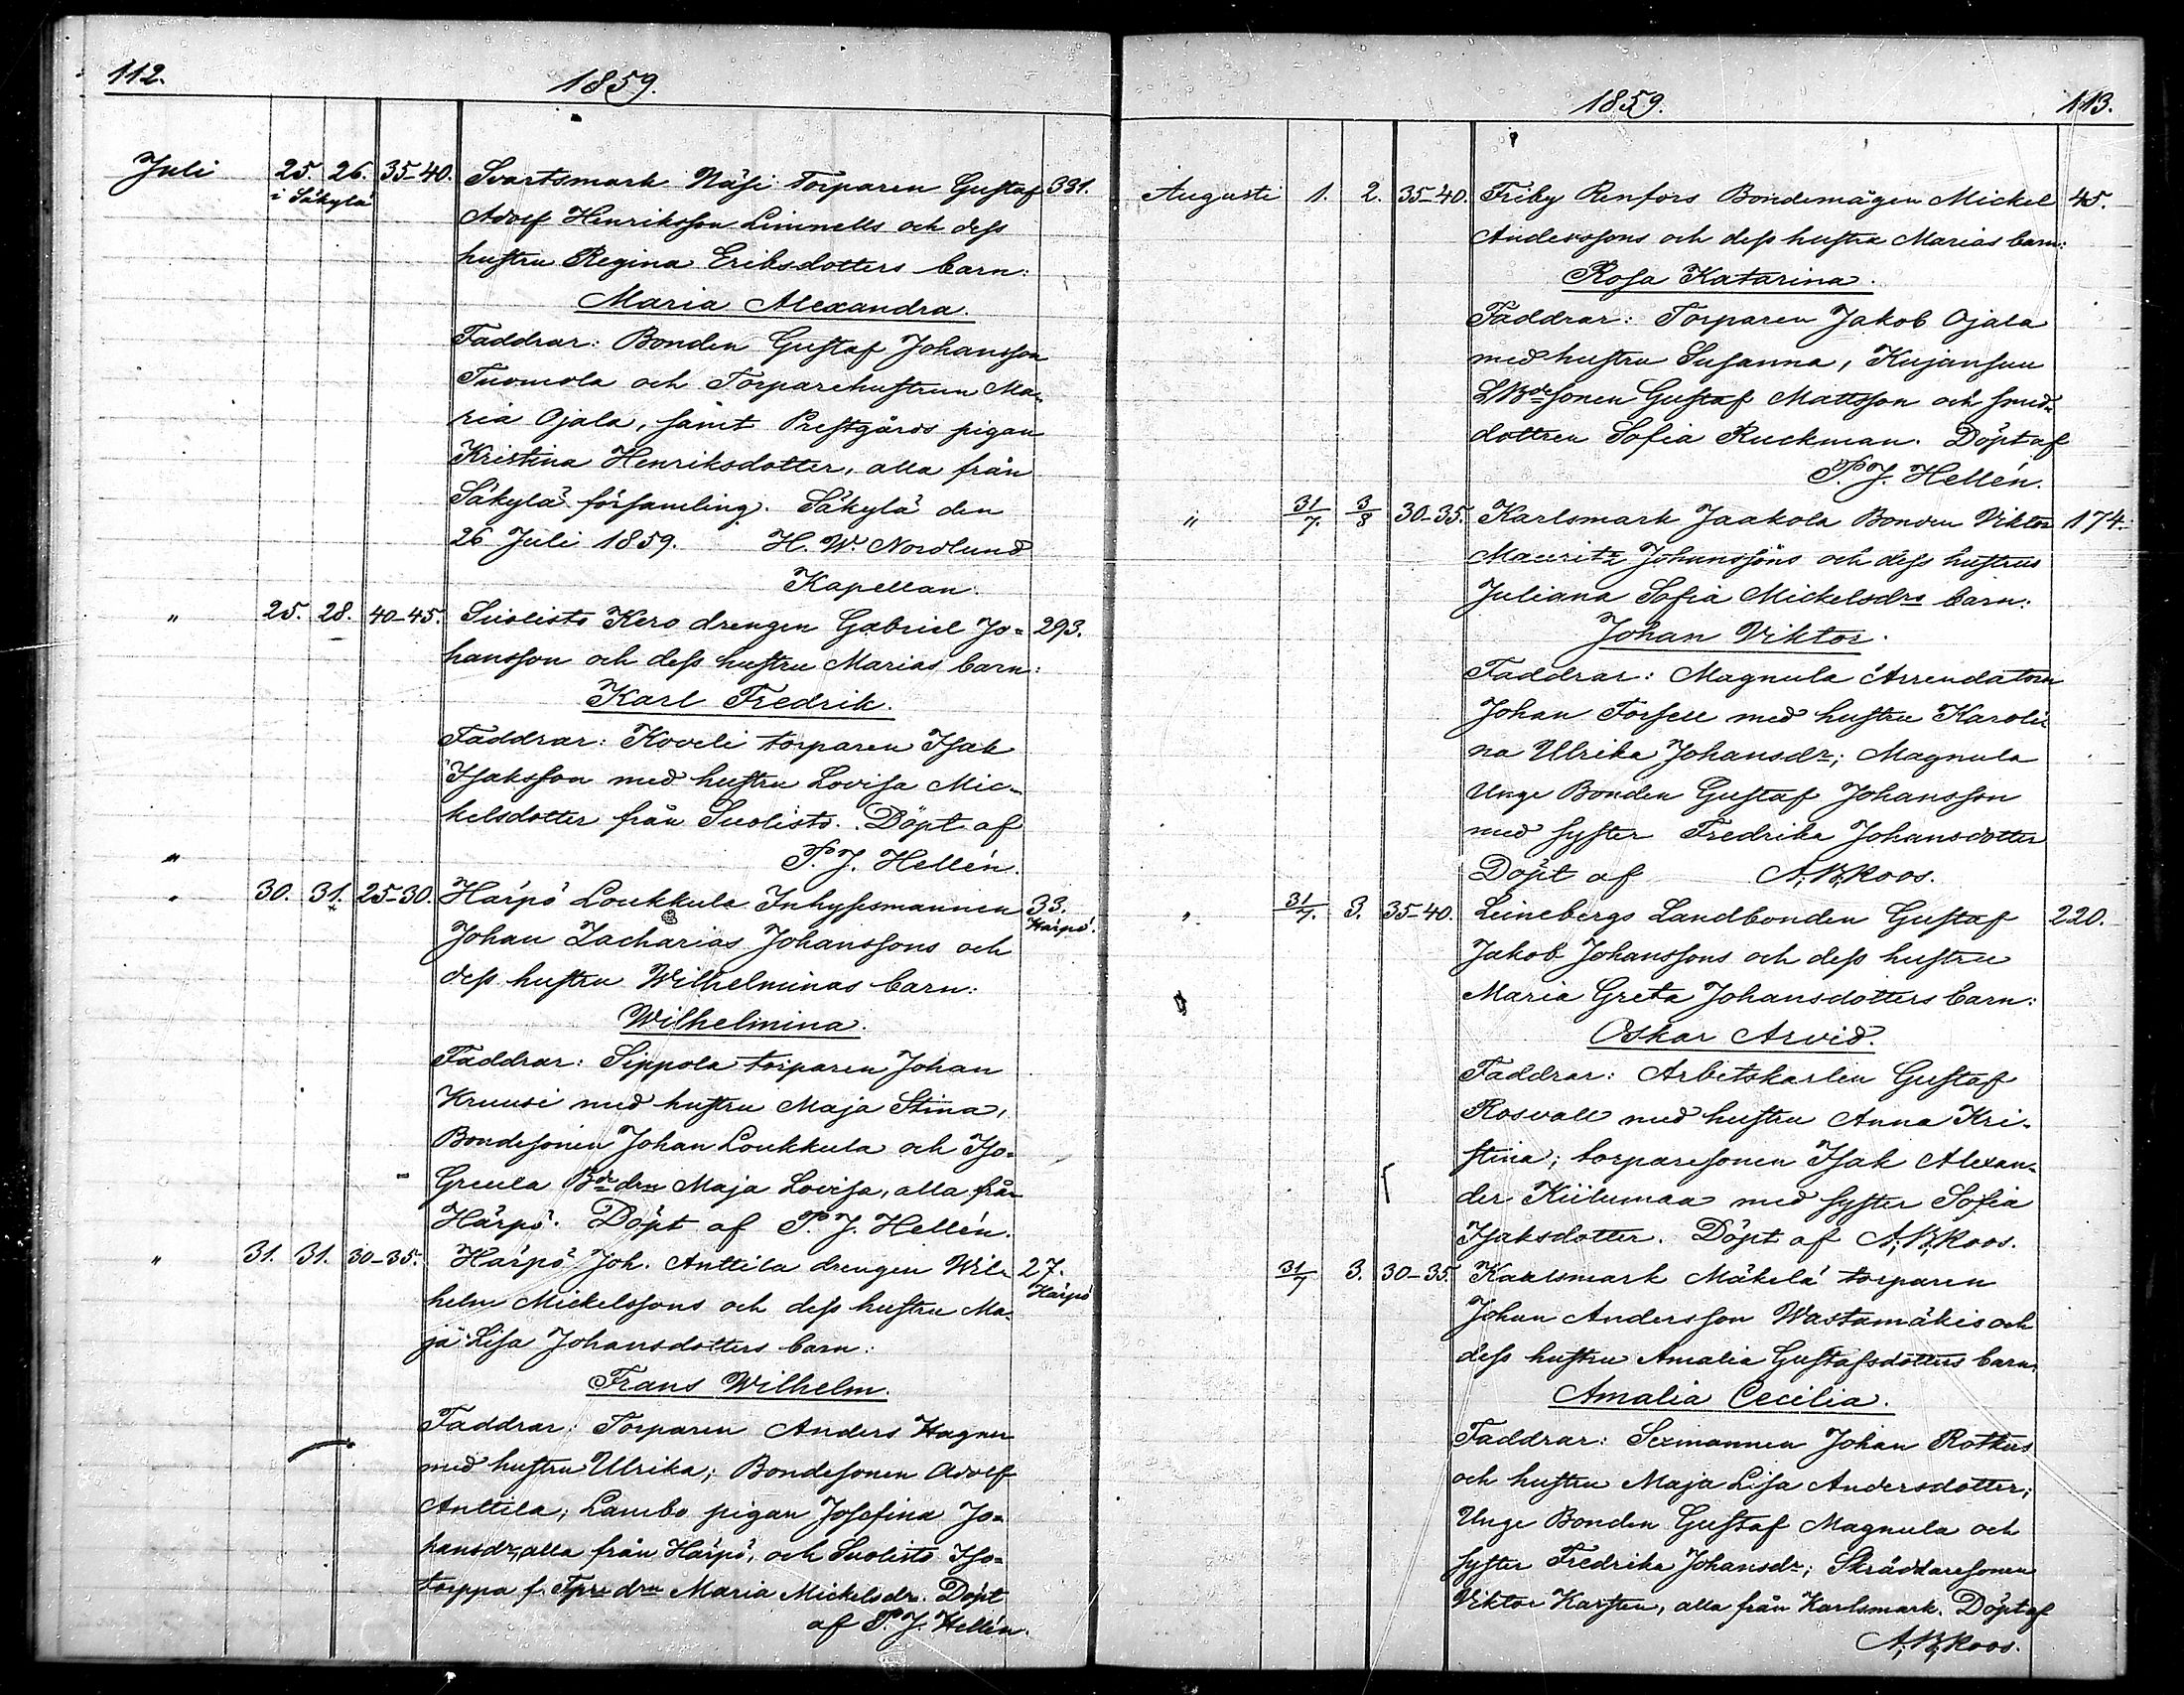 112.
1859.
Juli 25. 26. 35-40. Svartsmark Näsi Torparen Gustaf 331.
i Säkylä
Adolf Henriksson Linnells och dess
hustru Regina Eriksdotters barn:
Maria Alexandra.
Faddrar: Bonden Gustaf Johansson
Tuomola och Torparehustrun Ma-
ria Ojala, samt Prestgårds pigan
Kristina Henriksdotter, alla från
Säkylä församling. Säkylä den
26 Juli 1859. H. W. Nordlund
Kapellan.
" 25. 28. 40-45. Suolisto Kero drengen Gabriel Jo- 293.
hansson och dess hustru Marias barn:
Karl Fredrik.
Faddrar: Koveli torparen Isak
Isaksson med hustru Lovisa Mic-
kelsdotter från Suolisto. Döpt af
" P. J. Hellén.
" 30. 31. 25-30. Härpö Loukkula Inhysesmannen 33.
Härpö.
Johan Zacharias Johanssons och
dess hustru Wilhelminas barn:
Wilhelmina.
Faddrar: Sippola torparen Johan
Kruusi med hustru Maja Stina,
Bondesonen Johan Loukkula och Iso-
Greula Bde drn Maja Lovisa, alla från
Härpö. Döpt af P. J. Hellén.
" 31. 31. 30-35. Härpö Joh. Anttila drengen Wil- 27.
Härpö
helm Mickelssons och dess hustru Ma-
ja Lisa Johansdotters barn:
Frans Wilhelm.
Faddrar: Torparen Anders Hagner
med hustru Ulrika; Bondesonen Adolf
Anttila; Lambo pigan Josefina Jo-
hansdr, alla från Härpö, och Suolisto Iso-
torppa f. Tpre drn Maria Mickelsdr. Döpt
af P. J. Hellén.
1859.
113.
Augusti 1. 2. 35-40. Friby Renfors Bondemågen Mickel 45.
Anderssons och dess hustru Marias barn:
Rosa Katarina.
Faddrar: Torparen Jakob Ojala
med hustru Susanna, Kujansuu
LBdesonen Gustaf Mattsson och smed-
dottren Sofia Ruckman. Döpt af
P. J. Hellén.
" 31/7. 3/8 30-35. Karlsmark Jaakola Bonden Viktor 174.
Mauritz Johanssons och dess hustrus
Juliana Sofia Mickelsdrs barn:
Johan Viktor.
Faddrar: Magnula Arrendatorn
Johan Forsell med hustru Karoli-
na Ulrika Johansdr; Magnula
Unge Bonden Gustaf Johansson
med syster Fredrika Johansdotter
Döpt af A. B. Roos.
" 31/7. 3. 35-40. Leinebergs Landbonden Gustaf 220.
Jakob Johanssons och dess hustru
Maria Greta Johansdotters barn:
Oskar Arvid.
Faddrar: Arbetskarlen Gustaf
Rosvall med hustru Anna Kri-
stina; torparesonen Isak Alexan-
der Kiilumaa med syster Sofia
Isaksdotter. Döpt af A. B. Roos.
31/7 3. 30-35. Karlsmark Mäkelä torparen
Johan Andersson Wastamäkis och
dess hustru Amalia Gustafsdotters barn.
Amalia Cecilia.
Faddrar: Sexmannen Johan Rotkus
och hustru Maja Lisa Andersdotter;
Unge Bonden Gustaf Magnula och
syster Fredrika Johansdr; Skräddaresonen
Viktor Karsten, alla från Karlsmark. Döpt af
A. B. Roos.